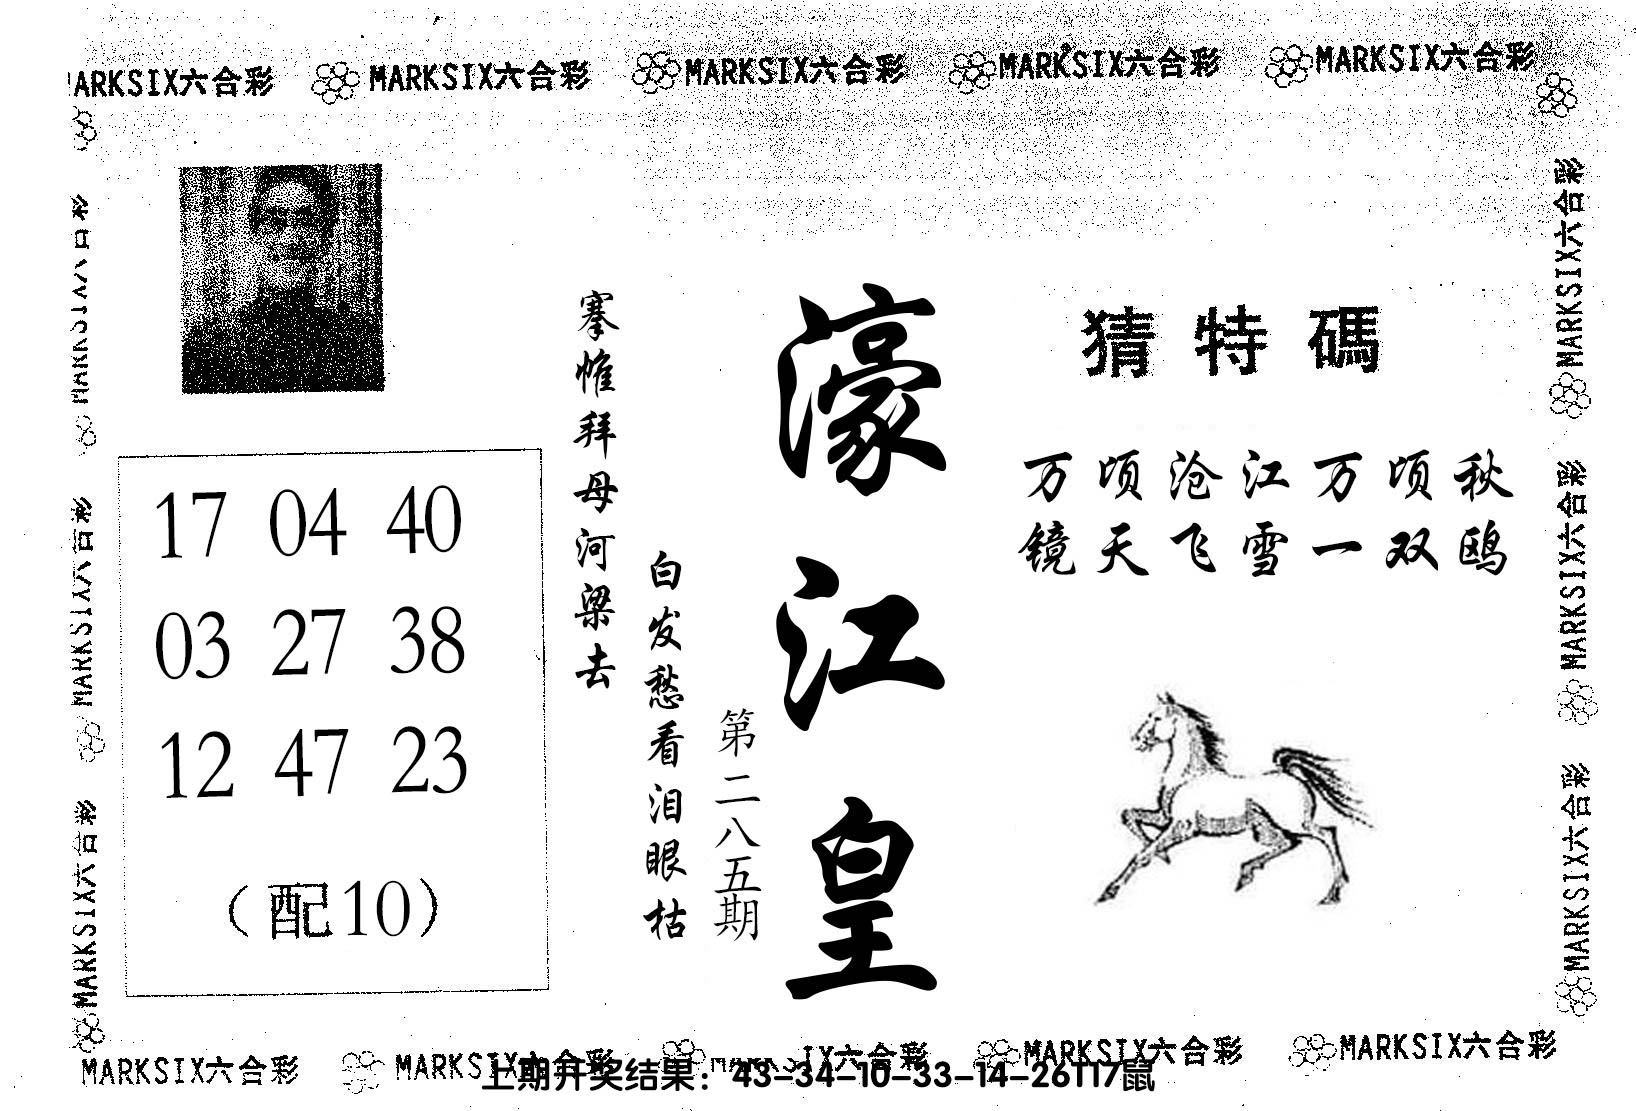 MARKSIX六合彩 MARKSIX六合彩 MARKSIX六合彩 MARKSIX六合彩 MARKSIX六合彩
猜特碼
万顷沧江万顷秋
镜天飞雪一双鸥
濠江皇
第二八五期
搴帷拜母河梁去
白发愁看泪眼枯
17 04 40
03 27 38
12 47 23
（配10）
MARKSIX六合彩
MARKSIX六合彩
MARKSIX六合彩
MARKSIX六合彩
MARKSIX六合彩
MARKSIX六合彩
MARKSIX六合彩 MARKSIX六合彩 IX六合彩 MARKSIX六合彩 MARKSIX六合彩
上期开奖结果：43-34-10-33-14-26T17鼠